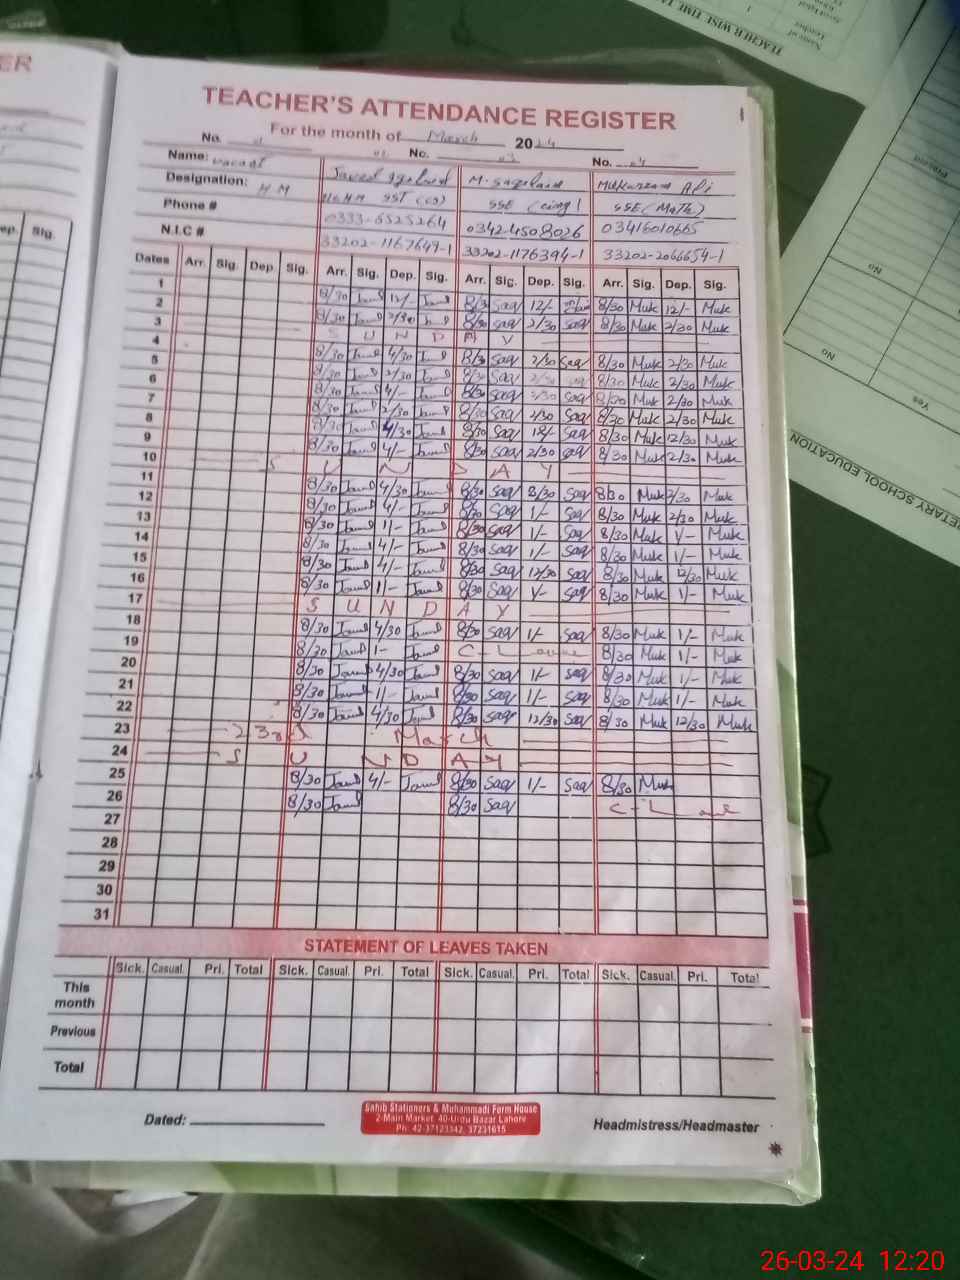 ER
TEACHER WISE TIME
Name of
Teacher
TEACHER'S ATTENDANCE REGISTER
For the month of March 2024
No. 01 02 No. 03 No. 04
Name: vacant M. Mukarram Ali
Designation: H M SST (CS) SSE (eing) SSE (Math)
Phone # 0333-6525264 0342-4508026 03416010665
N.I.C # 33202-1167649-1 33202-1176394-1 33202-2066654-1
Dates Arr. Sig. Dep. Sig. Arr. Sig. Dep. Sig. Arr. Sig. Dep. Sig. Arr. Sig. Dep. Sig.
1 8/30 12/- 8/30 Saq 12/- 8/30 Muk 12/- Muk
2 8/30 2/30 8/30 Saq 2/30 Saq 8/30 Muk 2/30 Muk
3 S U N D A Y
4 8/30 4/30 8/30 Saq 2/30 Saq 8/30 Muk 2/30 Muk
5 8/30 2/30 8/30 Saq 2/30 Saq 8/30 Muk 2/30 Muk
6 8/30 4/- 8/30 Saq 2/30 Saq 8/30 Muk 2/30 Muk
7 8/30 2/30 8/30 Saq 2/30 Saq 8/30 Muk 2/30 Muk
8 8/30 4/30 8/30 Saq 12/- Saq 8/30 Muk 12/30 Muk
9 8/30 4/- 8/30 Saq 2/30 Saq 8/30 Muk 2/30 Muk
10 S U N D A Y
11 8/30 4/30 8/30 Saq 2/30 Saq 8/30 Muk 2/30 Muk
12 8/30 4/- 8/30 Saq 1/- Saq 8/30 Muk 2/30 Muk
13 8/30 1/- 8/30 Saq 1/- Saq 8/30 Muk 1/- Muk
14 8/30 4/- 8/30 Saq 1/- Saq 8/30 Muk 1/- Muk
15 8/30 4/- 8/30 Saq 12/30 Saq 8/30 Muk 12/30 Muk
16 8/30 1/- 8/30 Saq 1/- Saq 8/30 Muk 1/- Muk
17 S U N D A Y
18 8/30 4/30 8/30 Saq 1/- Saq 8/30 Muk 1/- Muk
19 8/30 1- C-Leave 8/30 Muk 1/- Muk
20 8/30 4/30 8/30 Saq 1/- Saq 8/30 Muk 1/- Muk
21 8/30 1/- 8/30 Saq 1/- Saq 8/30 Muk 1/- Muk
22 8/30 4/30 8/30 Saq 12/30 Saq 8/30 Muk 12/30 Muk
23 23rd March
24 S U N D A Y
25 8/30 4/- 8/30 Saq 1/- Saq 8/30 Muk
26 8/30 8/30 Saq C-Leave
27
28
29
30
31
STATEMENT OF LEAVES TAKEN
Sick. Casual. Pri. Total Sick. Casual. Pri. Total Sick. Casual. Pri. Total Sick. Casual. Pri. Total
This month
Previous
Total
Dated:
Sahib Stationers & Muhammadi Form House
2-Main Market 40-Urdu Bazar Lahore
Ph: 42-37123342, 37231615
Headmistress/Headmaster
ep. Sig.
Present
No
No
Yes
ETARY SCHOOL EDUCATION
26-03-24 12:20